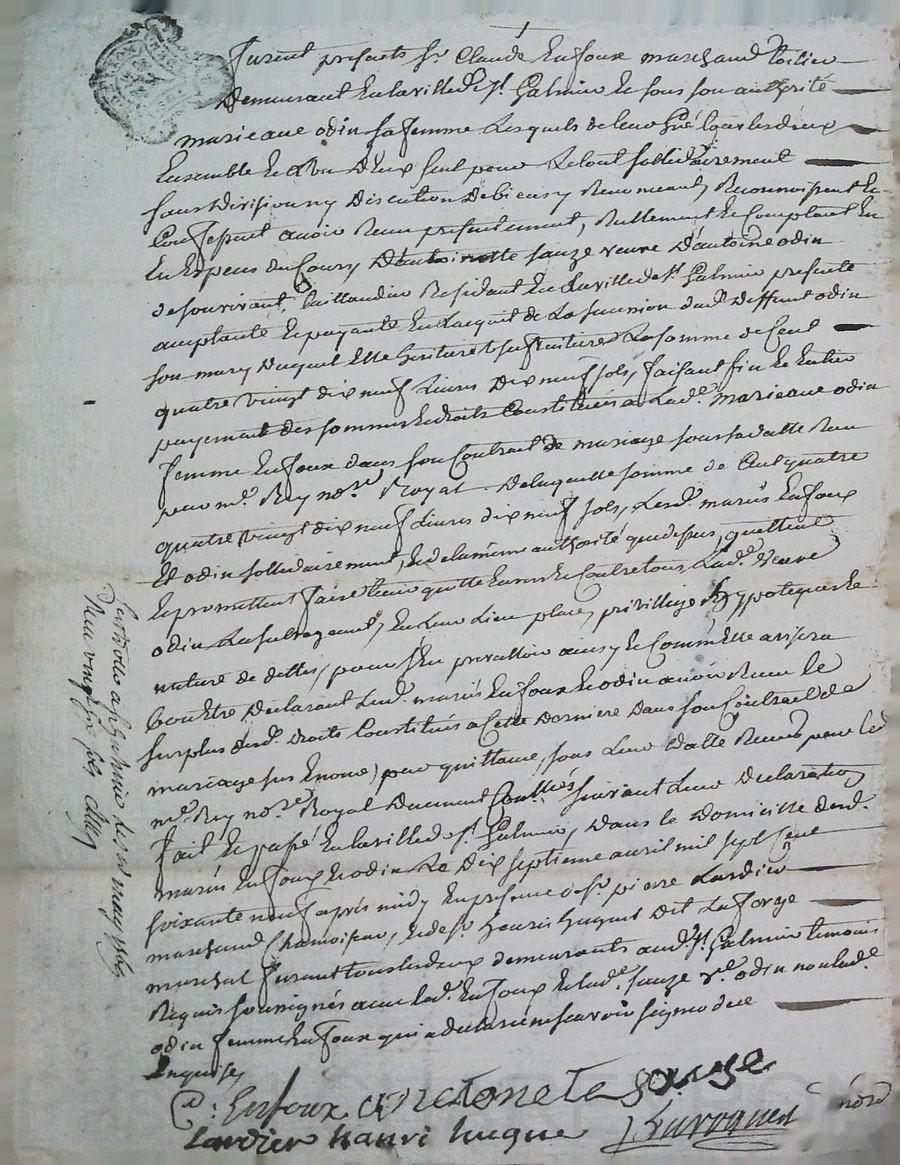 furent presents Sr. Claude Enfoux marchand toilier
Demeurant En la ville de St. Galmier Et sous son authorité
marieane odin sa femme Lesquels de leur gré tous les deux
Ensemble Et L'un D'Eux seul pour Le tout sollidairement
sans Division ny Discution De biens, Reconnoissent Et
Confessent avoir Receu presentement, Reellement Et Comptant En
En Especes du Cours, D'antoinette sauze veuve D'antoine odin
de son vivant, taillandier Residant En La ville de St. Galmier presente
acceptante Et payante En L'acquit de La succession dud. Deffunt odin
son mary Duquel Elle Heritiere La somme de Cent
quatre vingt dix neuf Livres Dix neuf sols, faisant fin Et Entier
payement des sommes Et droits Constitués a Lade. marieane odin
femme Enfoux dans son Contrat de mariage sous sa datte Receu
par me. Rey nore. Royal. De laquelle somme de Cent quatre
quatre vingt dix neuf Livres dix neuf sols, Lesd. mariés Enfoux
Et odin sollidairement, Et de la même authorité que dessus, quittent
Et promettent faire tenir quitte Envers Et Contre tous Lade. veuve
odin, La subrogeant, En Leur Lieu place, privillege Et hypoteque Et
nature de dettes, pour s'En prevalloir ainsy Et Comm'Elle avisera
bon Etre, Declarant Lesd. mariés Enfoux Et odin avoir Receu Le
surplus desd. droits Constitués a Cette Derniere Dans son Contract de
mariage sus Enoncé, par quittance, sous Leur Datte Receues par Led.
me. Rey nore. Royal Duement Conllés suivant Leur Declaration
fait Et passé En La ville de St. Galmier, Dans Le Domicille desd.
mariés Enfoux Et odin Le Dix septieme avril mil sept Cent
soixante neuf après midy En presence de Sr. pierre Lardier
marchand Chamoiseur, Et de Sr. Henris huguet Dit La forge
marchal ferant tous les deux demeurants aud. St. Galmier temoins
Requis soussignés avec Led. Enfoux Et Lade. sauze ve. odin non lade.
odin femme Enfoux qui a declaré ne sçavoir signer de ce
Enquise,
C: Enfoux antetonete sauze
Lardier hanri hugue
nore